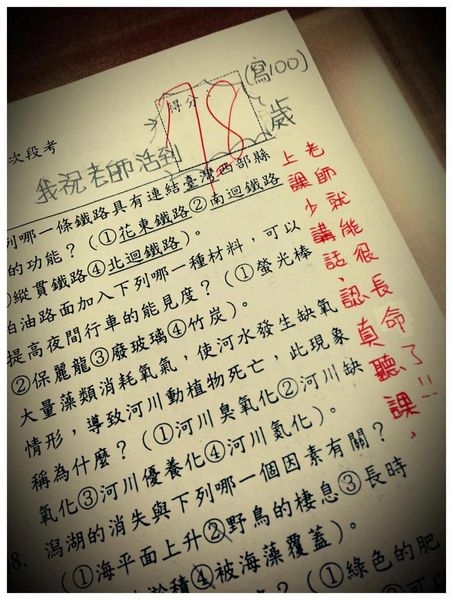 (寫100)
得分
78
次段考
我祝老師活到
歲
上課少講話、認真聽課，
老師就能很長命了!!
列哪一條鐵路具有連結臺灣西部縣
的功能？（①花東鐵路②南迴鐵路
縱貫鐵路④北迴鐵路）。
柏油路面加入下列哪一種材料，可以
提高夜間行車的能見度？（①螢光棒
②保麗龍③廢玻璃④竹炭）。
大量藻類消耗氧氣，使河水發生缺氧
情形，導致河川動植物死亡，此現象
稱為什麼？（①河川臭氧化②河川缺
氧化③河川優養化④河川氮化）。
8. 潟湖的消失與下列哪一個因素有關？
（①海平面上升②野鳥的棲息③長時
淤積④被海藻覆蓋）。
？（①綠色的肥